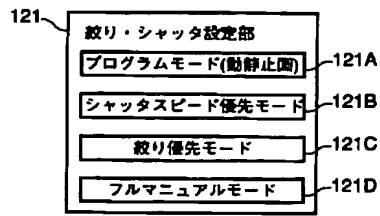 121
絞り・シャッタ設定部
プログラムモード(動静止画) 121A
シャッタスピード優先モード 121B
絞り優先モード 121C
フルマニュアルモード 121D